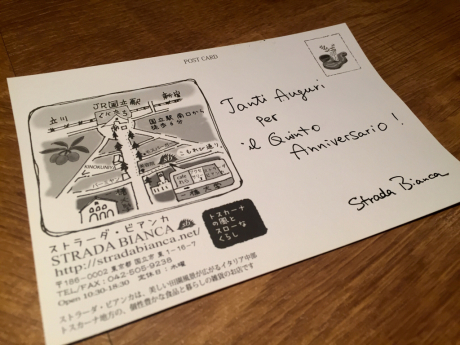 POST CARD
JR国立駅
立川
新宿
南口
国立駅 南口から
徒歩4分
KINOKUNIYA
Tanti Auguri
per
il Quinto
Anniversario!
Strada Bianca
ストラーダ・ビアンカ
STRADA BIANCA
http://stradabianca.net/
〒186-0002 東京都 国立市 東 1-16-7
TEL/FAX: 042-505-9236
定休日: 水曜
Open 10:30-18:30
トスカーナ
の風と
スローな
くらし
ストラーダ・ビアンカは、美しい田園風景が広がるイタリア中部
トスカーナ地方の、個性豊かな食品と暮らしの雑貨のお店です